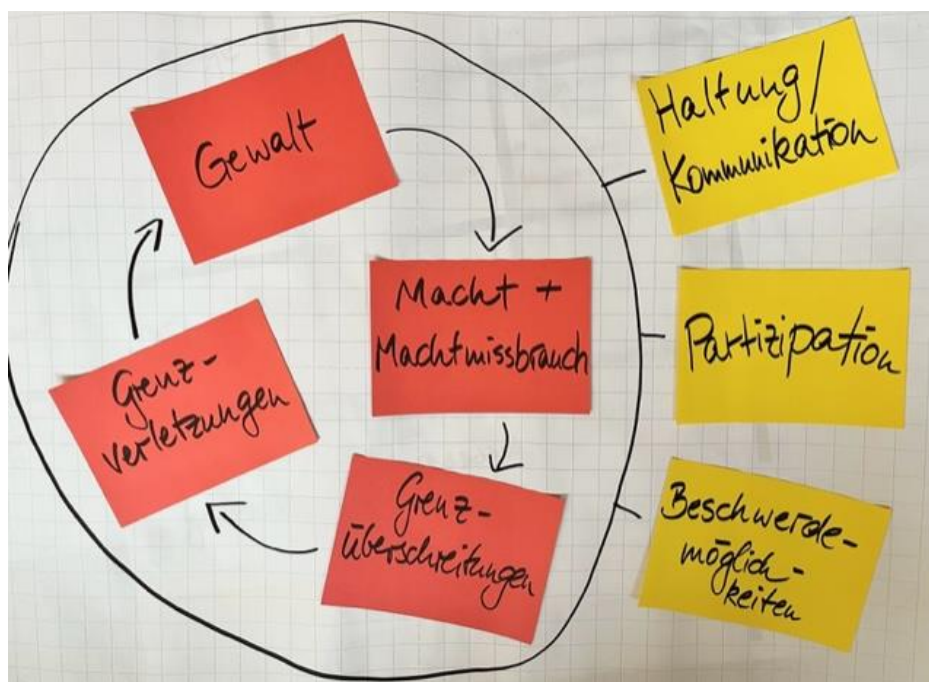 Gewalt
Macht +
Machtmissbrauch
Grenz-
überschreitungen
Grenz-
verletzungen
Haltung/
Kommunikation
Partizipation
Beschwerde-
möglich-
keiten